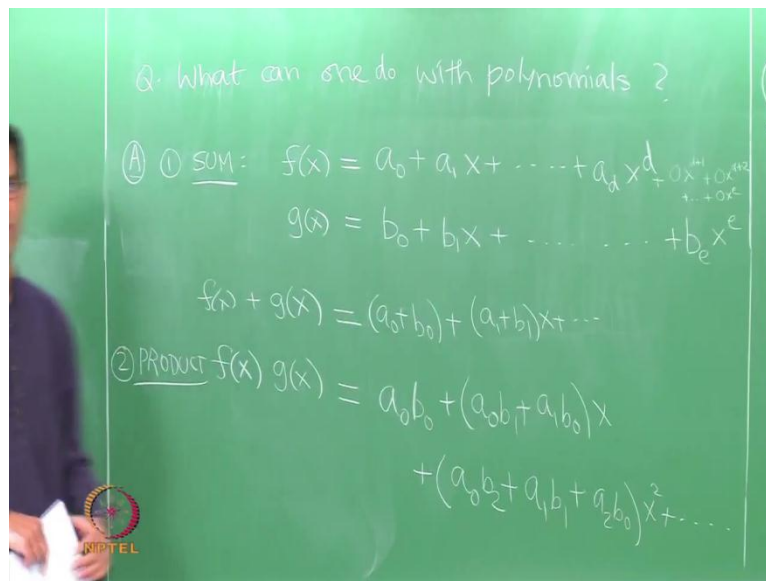 Q. What can one do with polynomials ?
(A) ① SUM: f(x) = a₀ + a₁x + ⋯⋯ + a_d x^d + 0x^{d+1} + 0x^{d+2}
+⋯+0x^e
g(x) = b₀ + b₁x + ⋯⋯⋯ + b_e x^e
f(x) + g(x) = (a₀+b₀) + (a₁+b₁)x + ⋯
② PRODUCT f(x) g(x) = a₀b₀ + (a₀b₁ + a₁b₀)x
+ (a₀b₂ + a₁b₁ + a₂b₀)x² + ⋯⋯
NPTEL